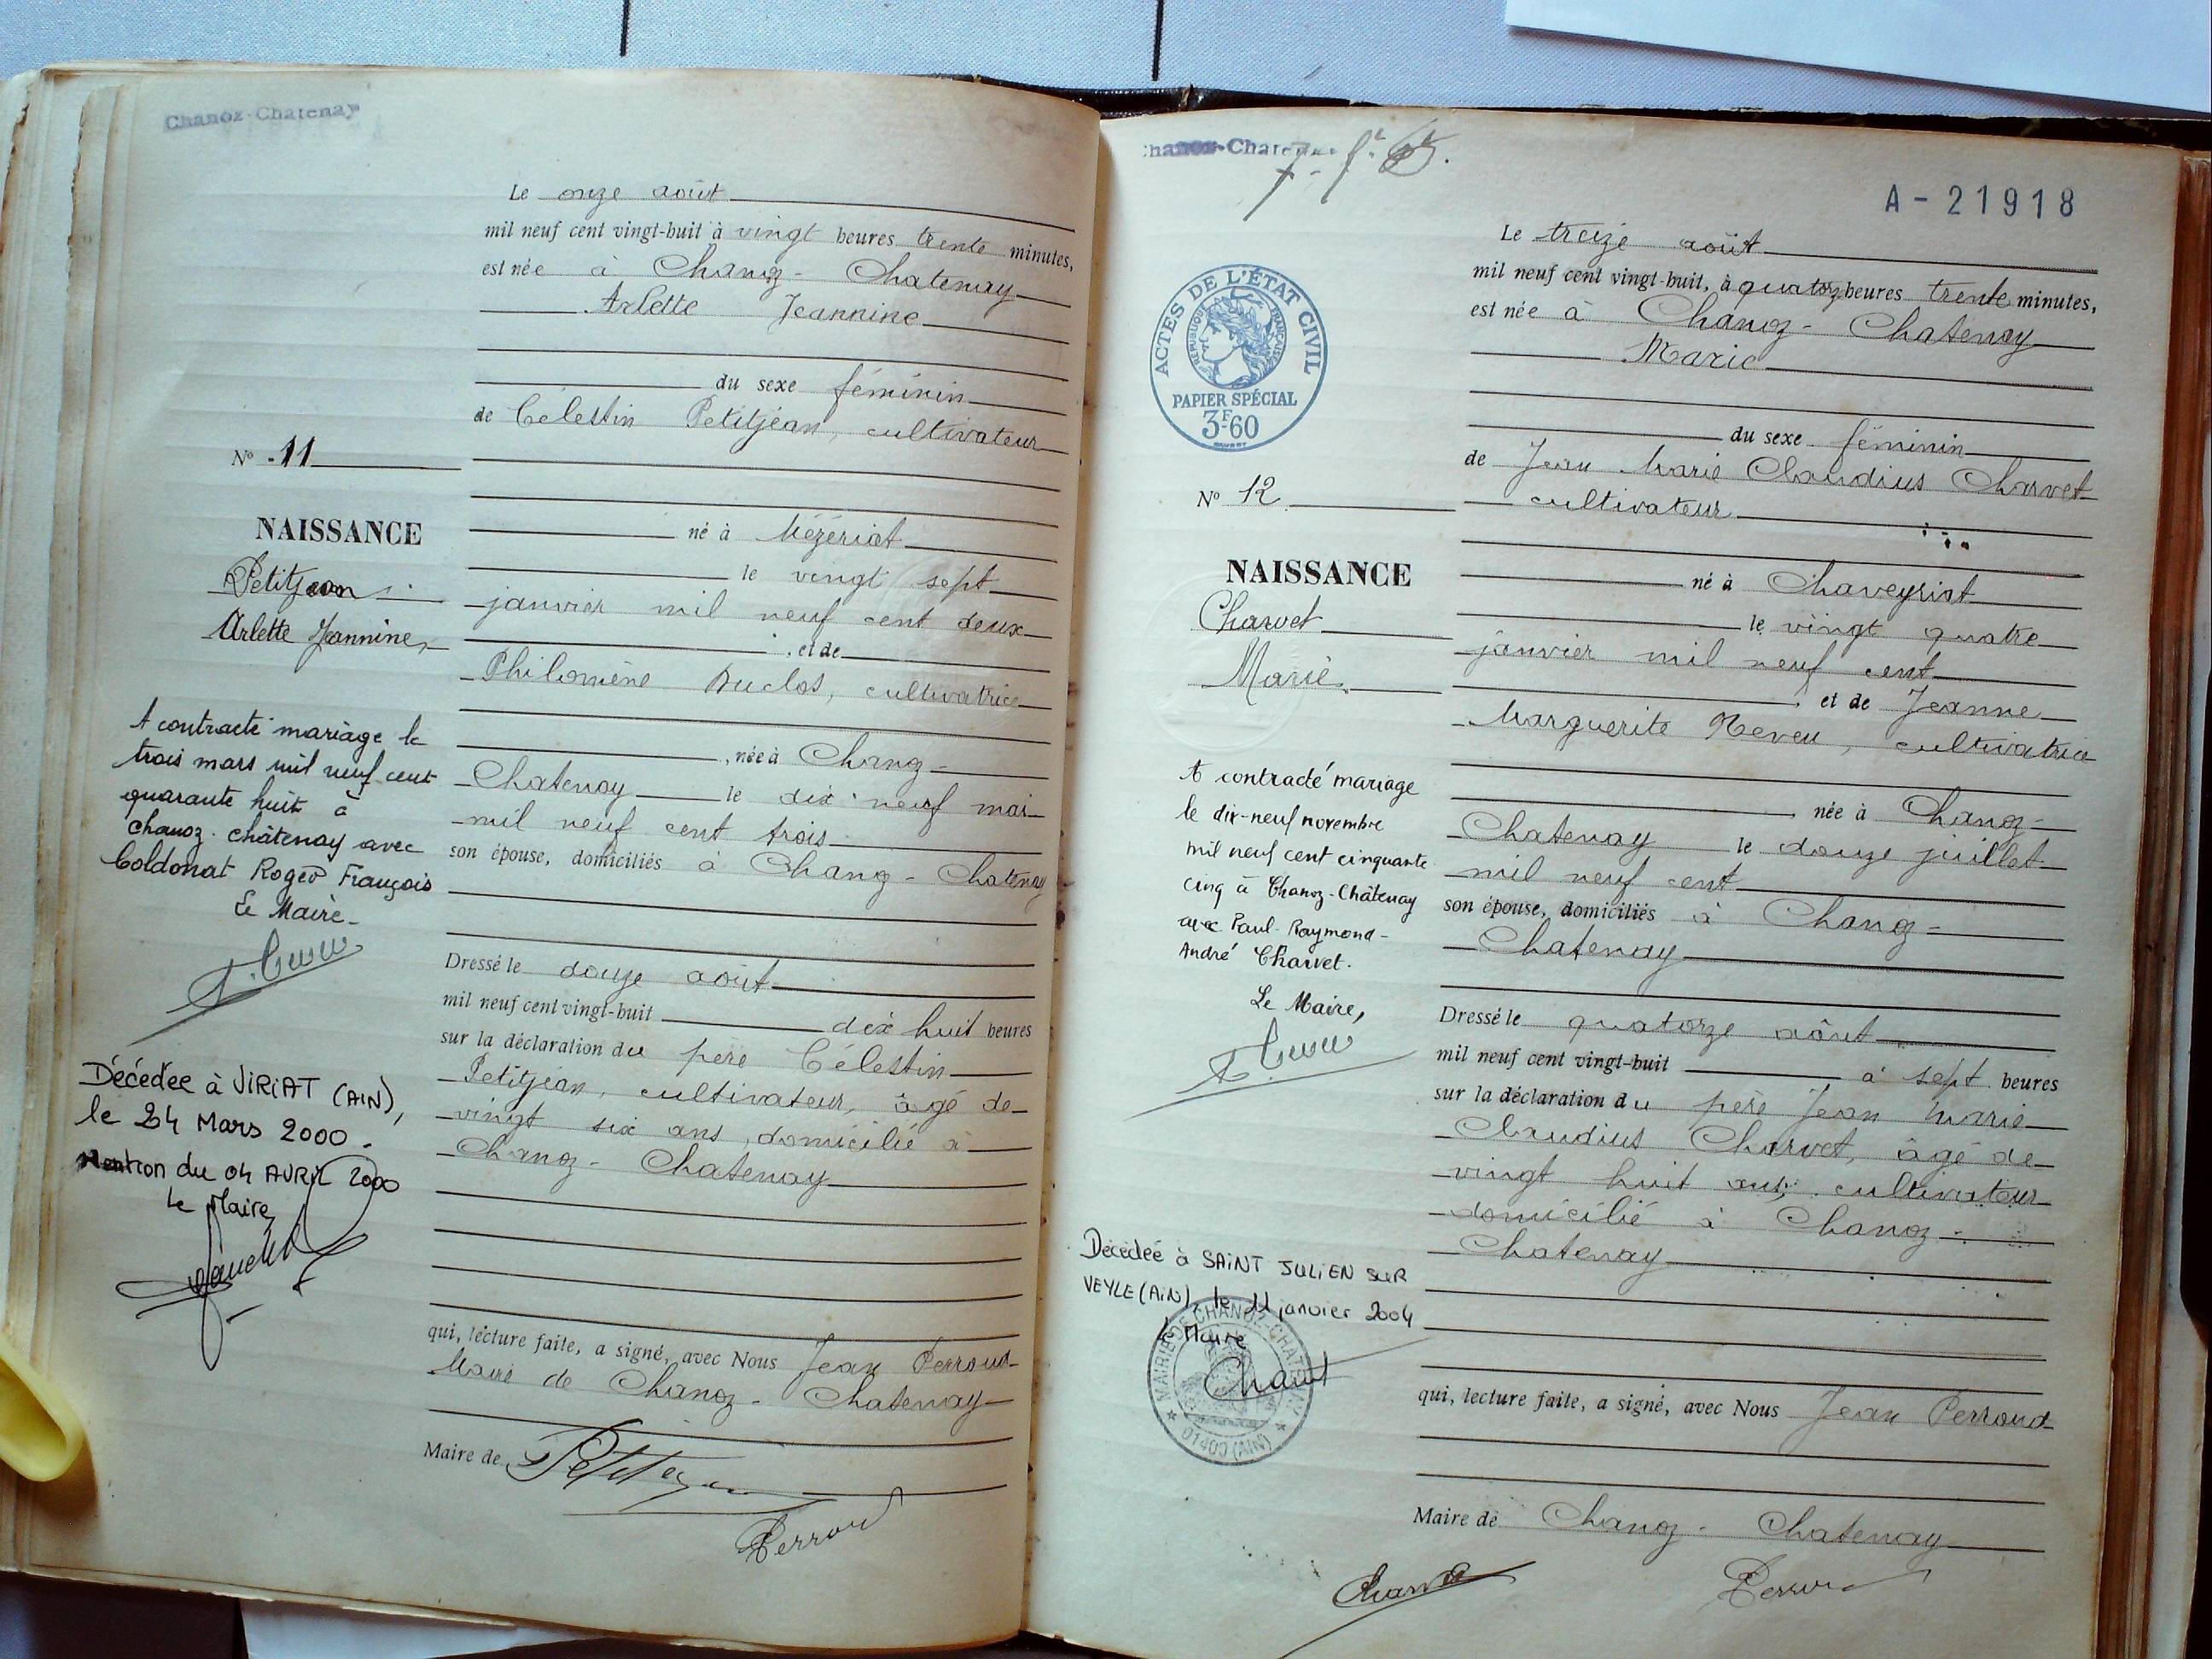 Chanoz-Chatenay
Le onze août
mil neuf cent vingt-huit à vingt heures trente minutes,
est née à Chanoz - Chatenay
Arlette Jeannine
du sexe féminin
de Célestin Petitjean, cultivateur
né à Mézériat
le vingt sept
janvier mil neuf cent deux
et de
Philomène Duclos, cultivatrice
, née à Chanoz -
Chatenay le dix neuf mai
mil neuf cent trois
son épouse, domiciliés à Chanoz - Chatenay
Dressé le douze août
mil neuf cent vingt-huit dix huit heures
sur la déclaration du père Célestin
Petitjean, cultivateur, âgé de
vingt six ans, domicilié à
Chanoz - Chatenay
qui, lecture faite, a signé, avec Nous Jean Perroud
Maire de Chanoz - Chatenay
Maire de
Petitjean
Perroud
N° 11
NAISSANCE
Petitjean
Arlette Jeannine
A contracté mariage le
trois mars mil neuf cent
quarante huit à
Chanoz-Châtenay avec
Coldonat Roger François
Le Maire
Décédée à VIRIAT (AIN),
le 24 Mars 2000.
Mention du 04 AVRIL 2000
Le Maire
Chanoz-Chatenay
A-21918
ACTES DE L'ÉTAT CIVIL
RÉPUBLIQUE FRANÇAISE
PAPIER SPÉCIAL
3F60
N° 12
NAISSANCE
Charvet
Marie
A contracté mariage
le dix-neuf novembre
mil neuf cent cinquante
cinq à Chanoz-Châtenay
avec Paul-Raymond-
André Charvet.
Le Maire,
Décédée à SAINT JULIEN SUR
VEYLE (AIN), le 11 janvier 2004
Le Maire
MAIRIE DE CHANOZ-CHATENAY
01400 (AIN)
Le treize août
mil neuf cent vingt-huit, à quatorze heures trente minutes,
est née à Chanoz - Chatenay
Marie
du sexe féminin
de Jean Marie Claudius Charvet
cultivateur
né à Chaveyriat
le vingt quatre
janvier mil neuf cent
et de Jeanne
Marguerite Neveu, cultivatrice
née à Chanoz -
Chatenay le douze juillet
mil neuf cent
son épouse, domiciliés à Chanoz -
Chatenay
Dressé le quatorze août
mil neuf cent vingt-huit à sept heures
sur la déclaration du père Jean Marie
Claudius Charvet, âgé de
vingt huit ans, cultivateur
domicilié à Chanoz -
Chatenay
qui, lecture faite, a signé, avec Nous Jean Perroud
Maire de Chanoz - Chatenay
Charvet
Perroud